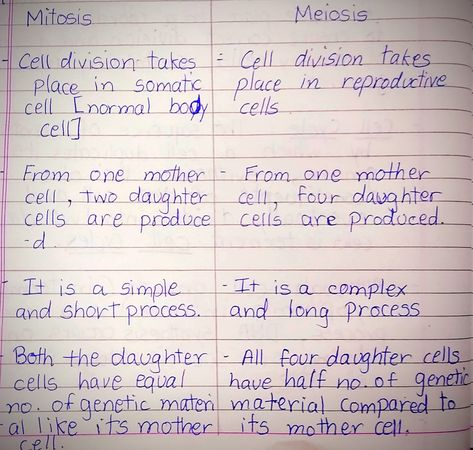 Mitosis
Meiosis
- Cell division takes
place in somatic
cell [normal body
cell]
- Cell division takes
place in reproductive
cells
- From one mother
cell, two daughter
cells are produce
-d.
- From one mother
cell, four daughter
cells are produced.
- It is a simple
and short process.
- It is a complex
and long process
- Both the daughter
cells have equal
no. of genetic materi
al like its mother
cell.
- All four daughter cells
have half no. of genetic
material compared to
its mother cell.